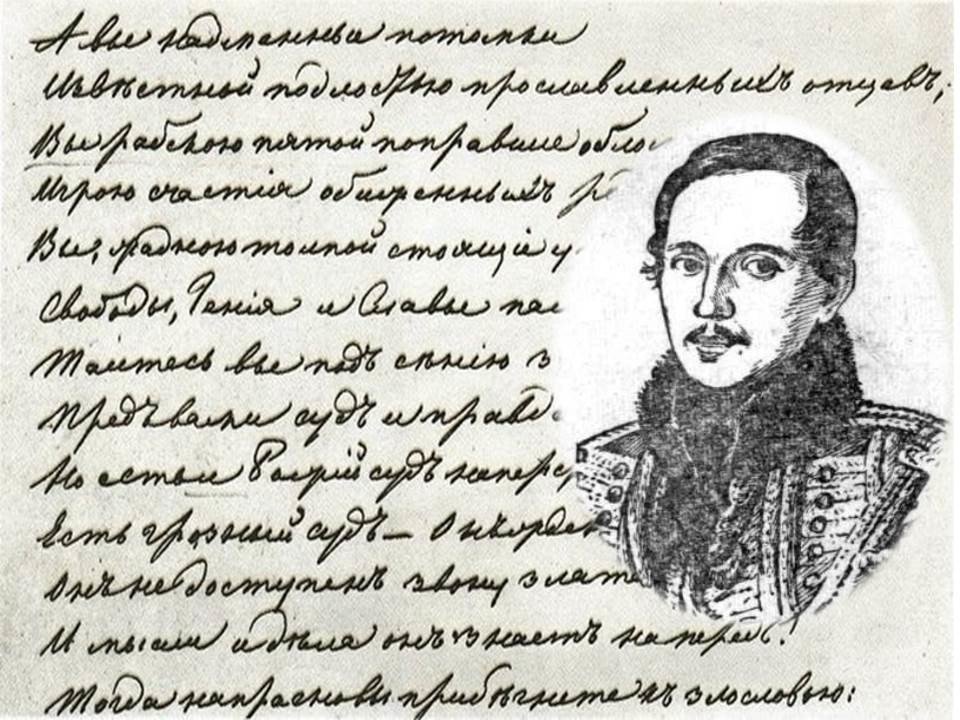 А вы надменные потомки
Извѣстной подлостью прославленныхъ отцевъ,
Вы рабскою пятой поправшие обло
Игрою счастія обиженныхъ р
Вы, жадною толпой стоящіе у
Свободы, Генія и Славы пал
Таитесь вы подъ сѣнію з
Предъ вами судъ и правд
Но есть и Божій судъ наперс
Есть грозный судъ — Онъ ждет
Онъ не доступенъ звону злата
И мысли и дѣла онъ знаетъ напередъ!
Тогда напрасно вы прибѣгнете къ злословью: